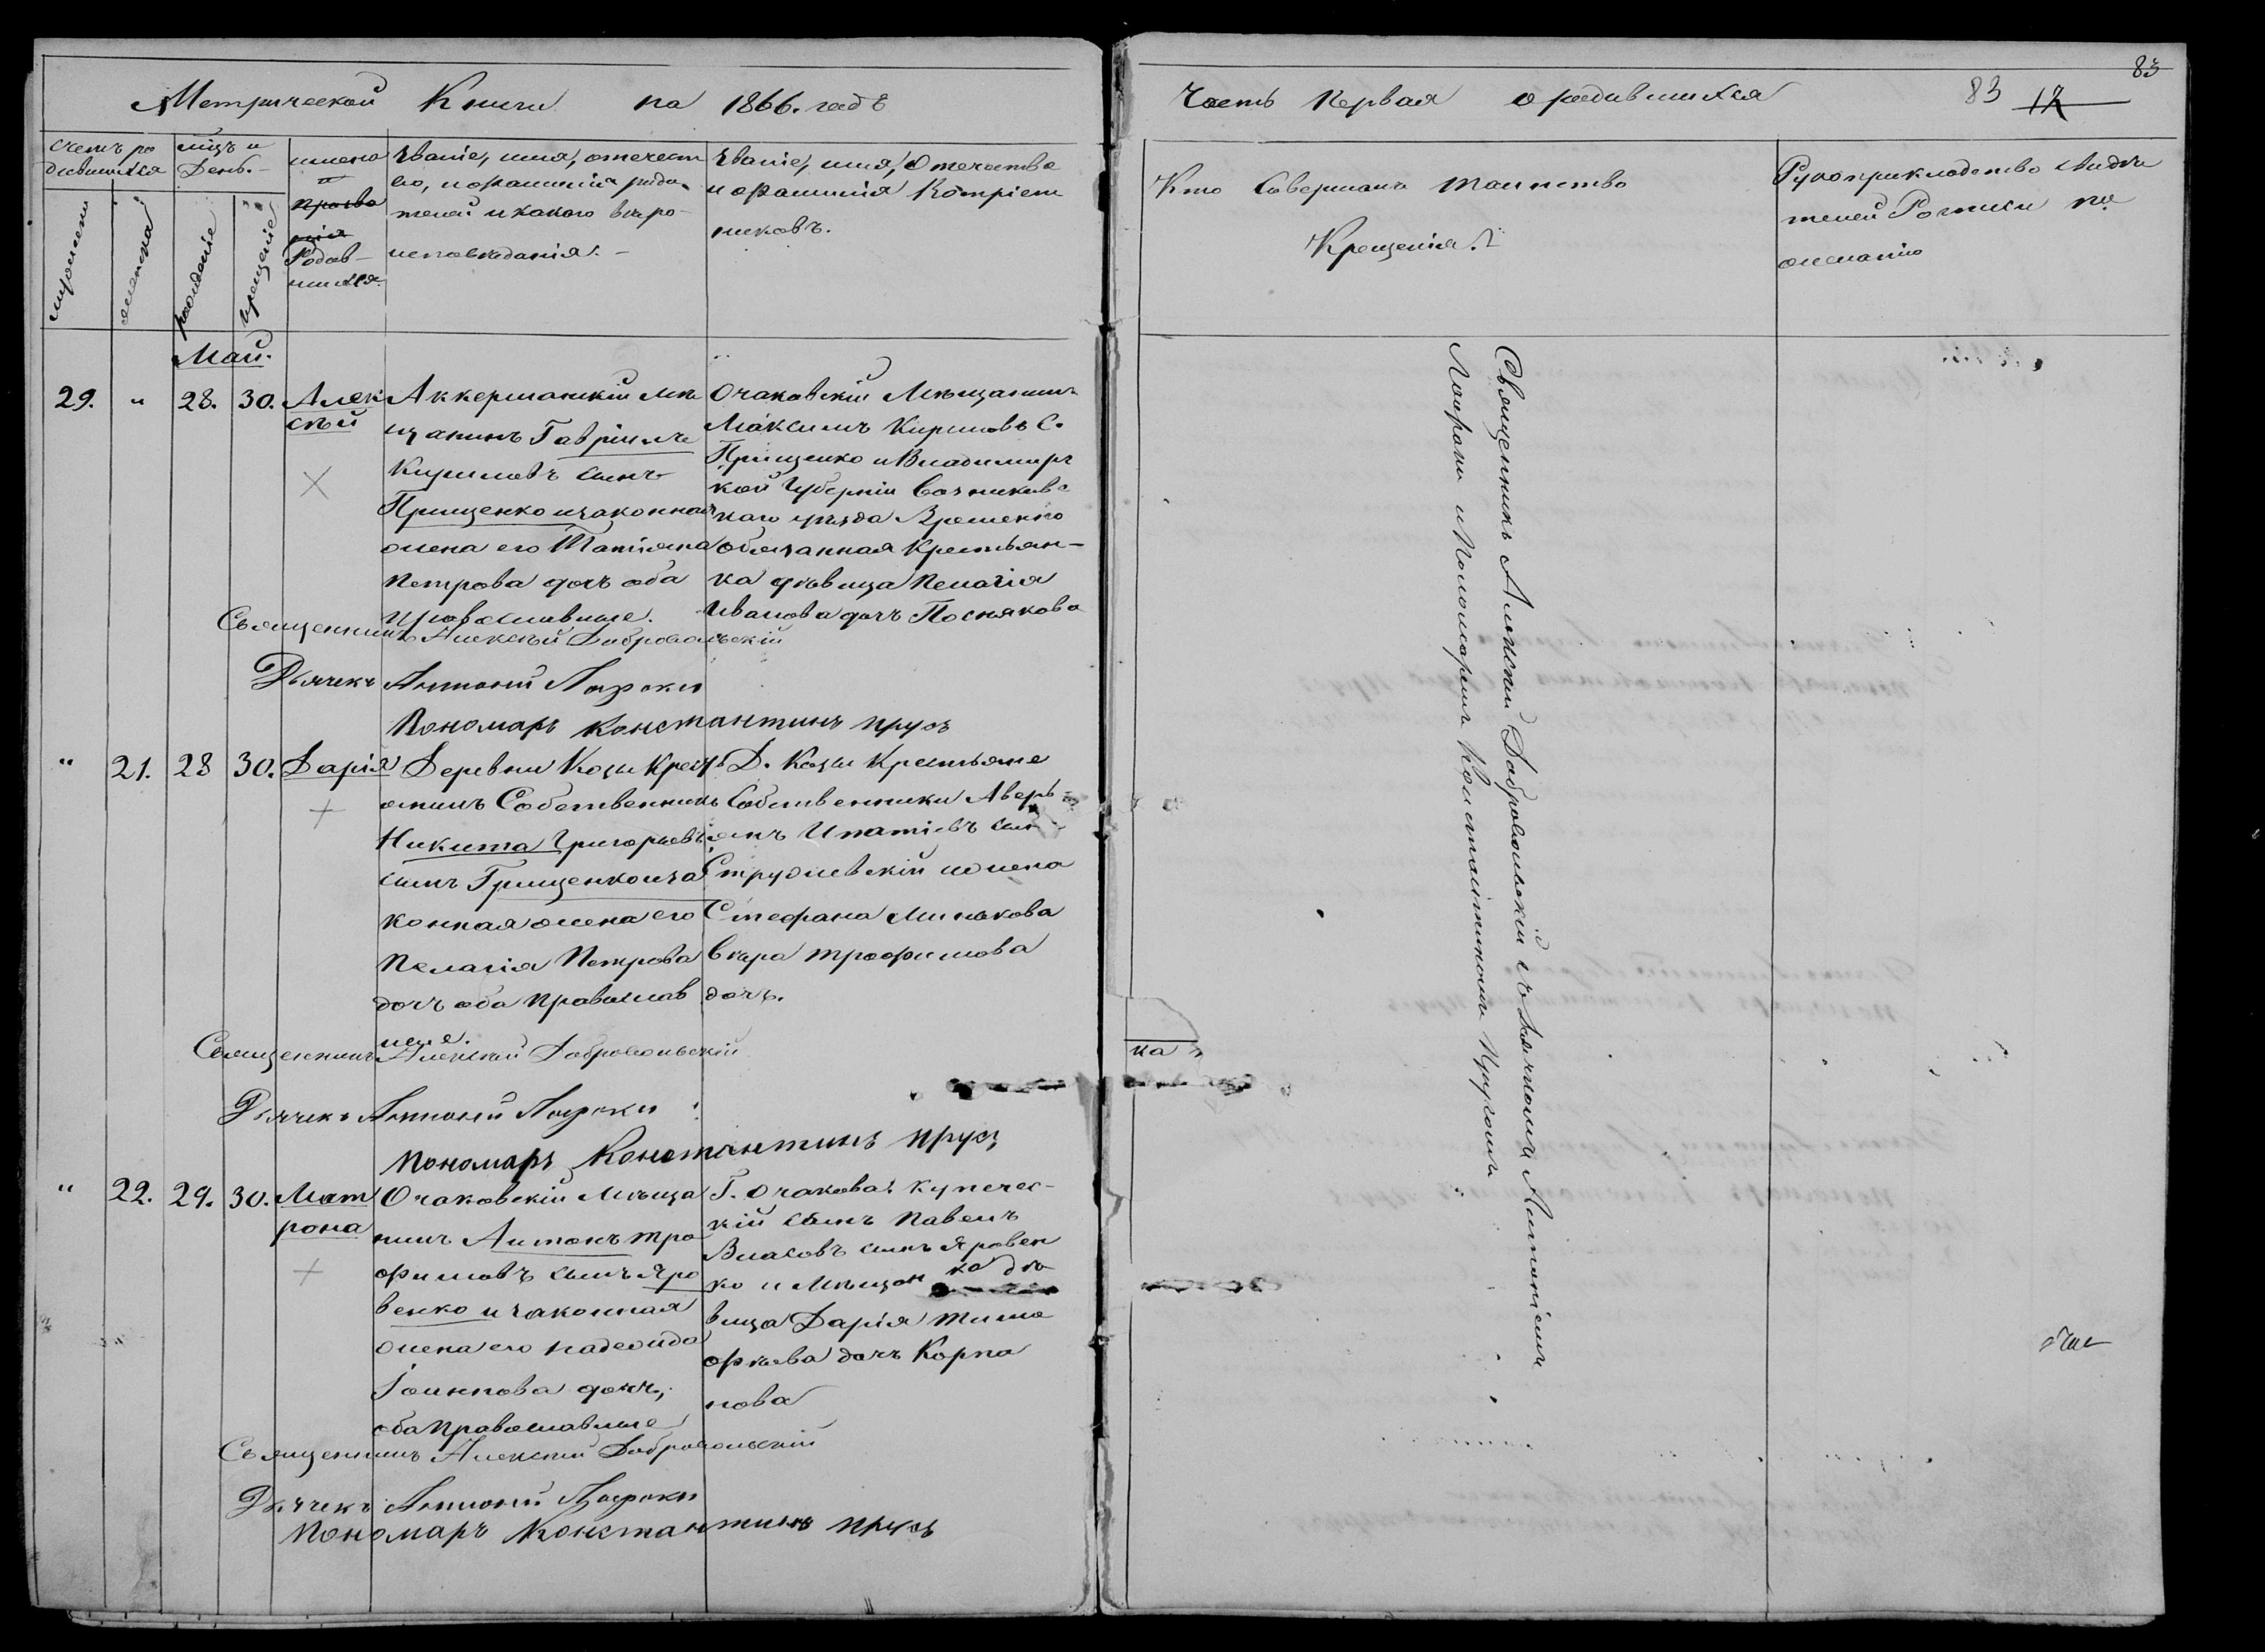 Метрической Книги на 1866. годъ
Часть первая о родившихся
83
83
12
Счетъ ро
дившихся
мцъ и
день.
имена
и
прозва
ния
Родив
шихся.
Званіе, имя, отечест
во, и фамилія роди
телей и какого веро
исповеданія.
Званіе, имя, Отечество
и фамилія Воспріем
никовъ.
Кто Совершалъ таинство
Крещенія.
Рукоприкладство свиде
телей Записи по
желанію
мужеска
женска
рожденіе
крещеніе
Май.
29. " 28. 30.
Алек
сѣй
Аккерманскій мѣ
щанинъ Гавріилъ
Кириловъ сынъ
Грищенко и законная
жена его Татіяна
Петрова дочь оба
православные.
Очаковскій Мѣщанинъ
Максимъ Кириловъ С.
Грищенко и Владимирс
кой Губерніи Вязниковс
каго уѣзда Временно
обязанная Крестьян-
ка дѣвица Пелагія
Иванова дочь Послякова
Священникъ Алексѣй Добровольскій
Дьячекъ Антоній Лафоки
Пономаръ Константинъ Прусъ
" 21. 28 30. Дарія
Деревни Козы Кресть
янинъ Собственникъ
Никита Григорьевъ
сынъ Грищенко и за
конная жена его
Пелагія Петрова
дочь оба православ
ные.
Д. Козы Крестьяне
Собственники Аверь
янъ Ипатіевъ сын
Стружевскій и жена
Стефана Минакова
Вѣра Трофимова
дочь.
Священникъ Алексѣй Добровольскій
Дьячекъ Антоній Лафоки
Пономаръ Константинъ Прусъ
" 22. 29. 30.
Мат
рона
Очаковскій Мѣща
нинъ Антонъ Тро
фимовъ сынъ Яро
венко и законная
жена его Надежда
дочь,
оба православные
Г. Очакова. Купечес-
кій сынъ Павелъ
Власовъ сынъ Яровен
ко и Мѣщан ка дѣ
вица Дарія Тимо
фѣева дочь Карпа
нова
Священникъ Алексѣй Добровольскій
Дьячекъ Антоній Лафоки
Пономаръ Константинъ Прусъ
Священникъ Алексѣй Добровольскій съ Дьячкомъ Антоніемъ
Лафоки и Пономаремъ Константиномъ Прусомъ
ка